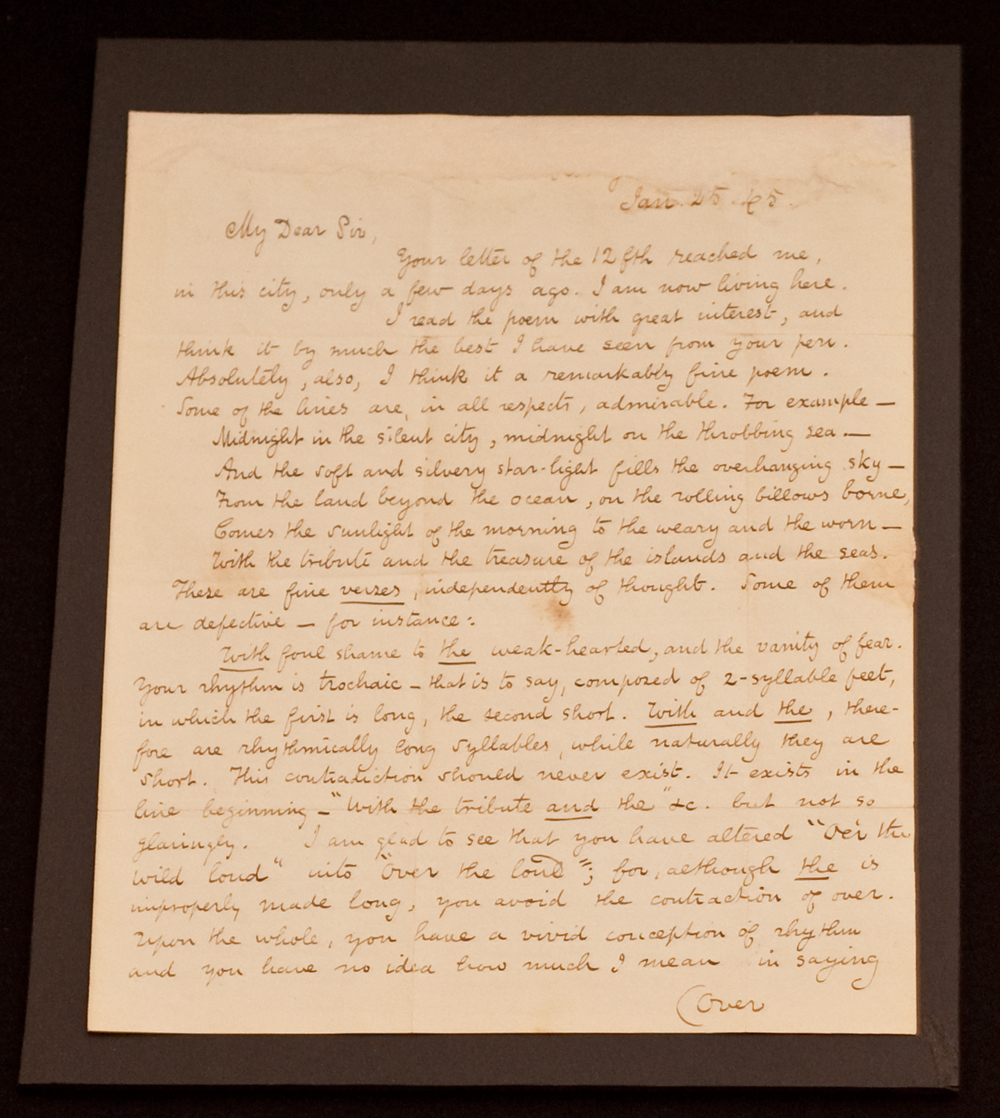 Jan. 25. 45.
My Dear Sir,
Your letter of the 12fth reached me,
in this city, only a few days ago. I am now living here.
I read the poem with great interest, and
think it by much the best I have seen from your pen.
Absolutely, also, I think it a remarkably fine poem.
Some of the lines are, in all respects, admirable. For example —
Midnight in the silent city, midnight on the throbbing sea —
And the soft and silvery star-light fills the overhanging sky —
From the land beyond the ocean, on the rolling billows borne,
Comes the sunlight of the morning to the weary and the worn —
With the tribute and the treasure of the islands and the seas.
These are fine verses, independently of thought. Some of them
are defective — for instance:
With foul shame to the weak-hearted, and the vanity of fear.
Your rhythm is trochaic — that is to say, composed of 2-syllable feet,
in which the first is long, the second short. With and the, there-
fore are rhythmically long syllables, while naturally they are
short. This contradiction should never exist. It exists in the
line beginning — "With the tribute and the" &c. but not so
glaringly. I am glad to see that you have altered "Oe'r the
wild loud" into "Over the loud"; for, although the is
improperly made long, you avoid the contraction of over.
Upon the whole, you have a vivid conception of rhythm
and you have no idea how much I mean in saying
(Over